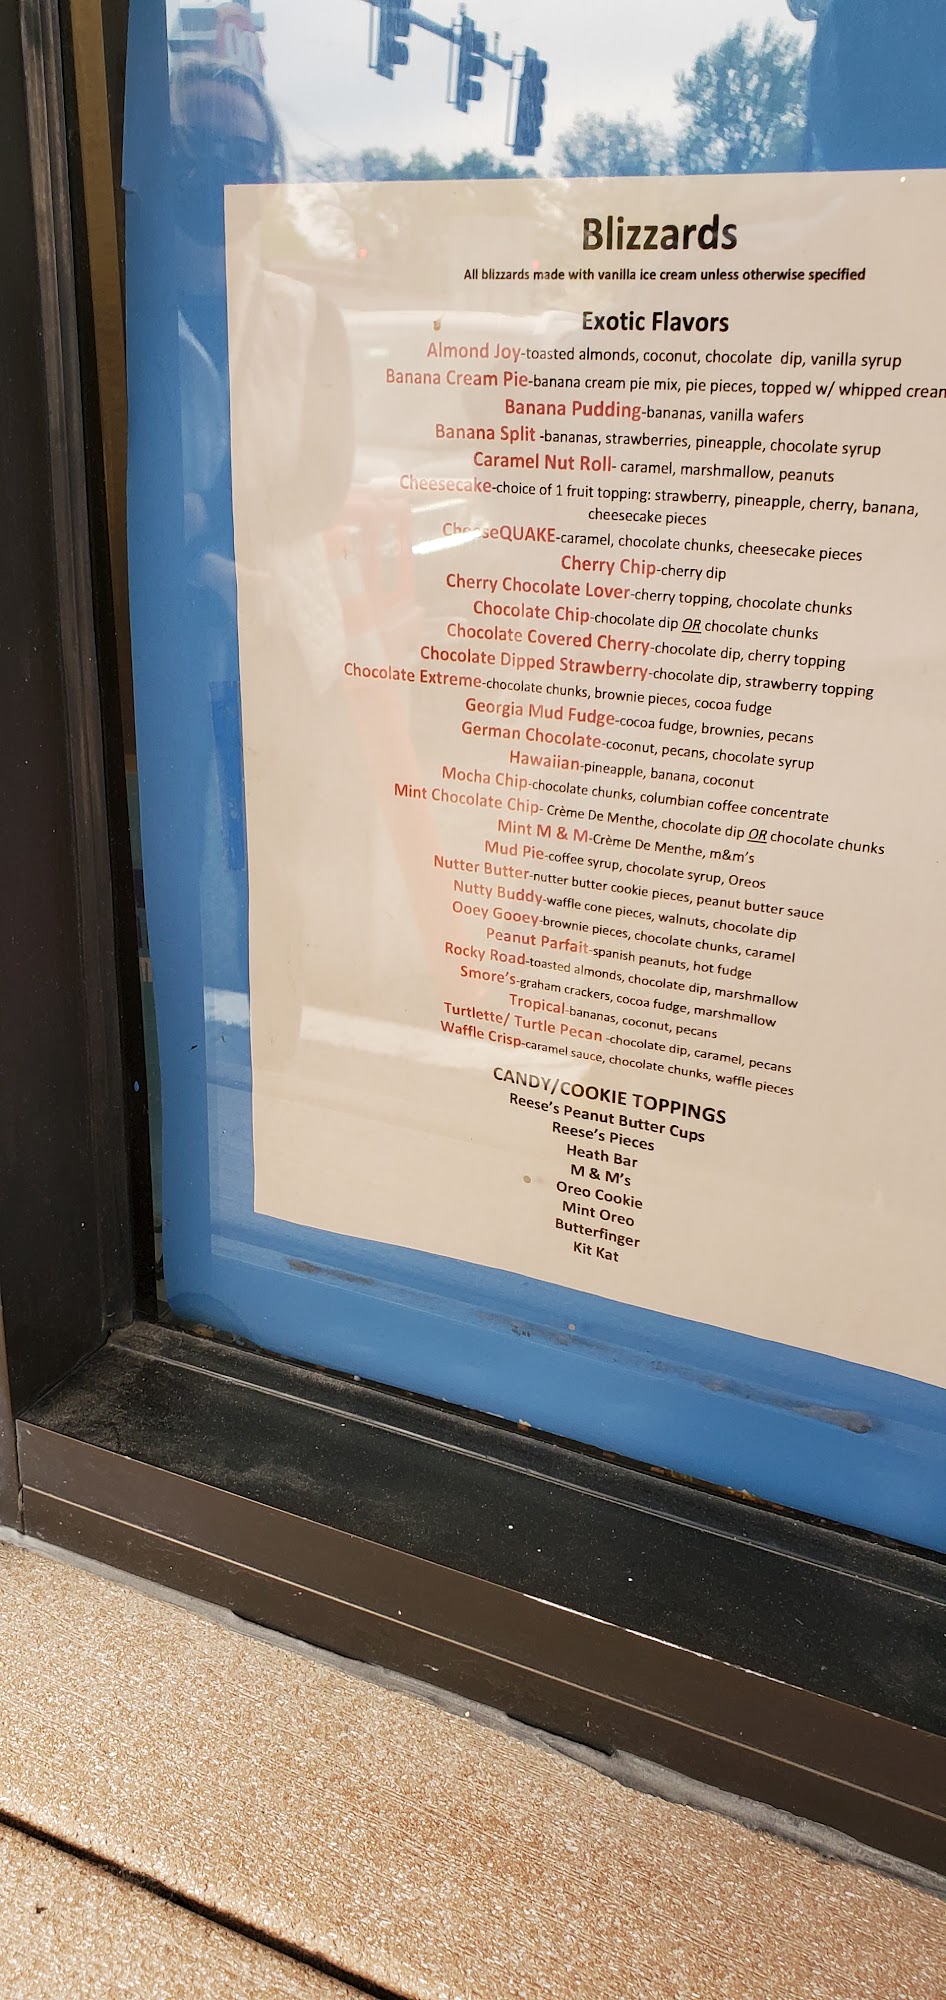 Blizzards
All blizzards made with vanilla ice cream unless otherwise specified
Exotic Flavors
Almond Joy-toasted almonds, coconut, chocolate dip, vanilla syrup
Banana Cream Pie-banana cream pie mix, pie pieces, topped w/ whipped cream
Banana Pudding-bananas, vanilla wafers
Banana Split -bananas, strawberries, pineapple, chocolate syrup
Caramel Nut Roll- caramel, marshmallow, peanuts
Cheesecake-choice of 1 fruit topping: strawberry, pineapple, cherry, banana,
cheesecake pieces
CheeseQUAKE-caramel, chocolate chunks, cheesecake pieces
Cherry Chip-cherry dip
Cherry Chocolate Lover-cherry topping, chocolate chunks
Chocolate Chip-chocolate dip OR chocolate chunks
Chocolate Covered Cherry-chocolate dip, cherry topping
Chocolate Dipped Strawberry-chocolate dip, strawberry topping
Chocolate Extreme-chocolate chunks, brownie pieces, cocoa fudge
Georgia Mud Fudge-cocoa fudge, brownies, pecans
German Chocolate-coconut, pecans, chocolate syrup
Hawaiian-pineapple, banana, coconut
Mocha Chip-chocolate chunks, columbian coffee concentrate
Mint Chocolate Chip- Crème De Menthe, chocolate dip OR chocolate chunks
Mint M & M-Crème De Menthe, m&m's
Mud Pie-coffee syrup, chocolate syrup, Oreos
Nutter Butter-nutter butter cookie pieces, peanut butter sauce
Nutty Buddy-waffle cone pieces, walnuts, chocolate dip
Ooey Gooey-brownie pieces, chocolate chunks, caramel
Peanut Parfait-spanish peanuts, hot fudge
Rocky Road-toasted almonds, chocolate dip, marshmallow
Smore's-graham crackers, cocoa fudge, marshmallow
Tropical-bananas, coconut, pecans
Turtlette/ Turtle Pecan -chocolate dip, caramel, pecans
Waffle Crisp-caramel sauce, chocolate chunks, waffle pieces
CANDY/COOKIE TOPPINGS
Reese's Peanut Butter Cups
Reese's Pieces
Heath Bar
M & M's
Oreo Cookie
Mint Oreo
Butterfinger
Kit Kat